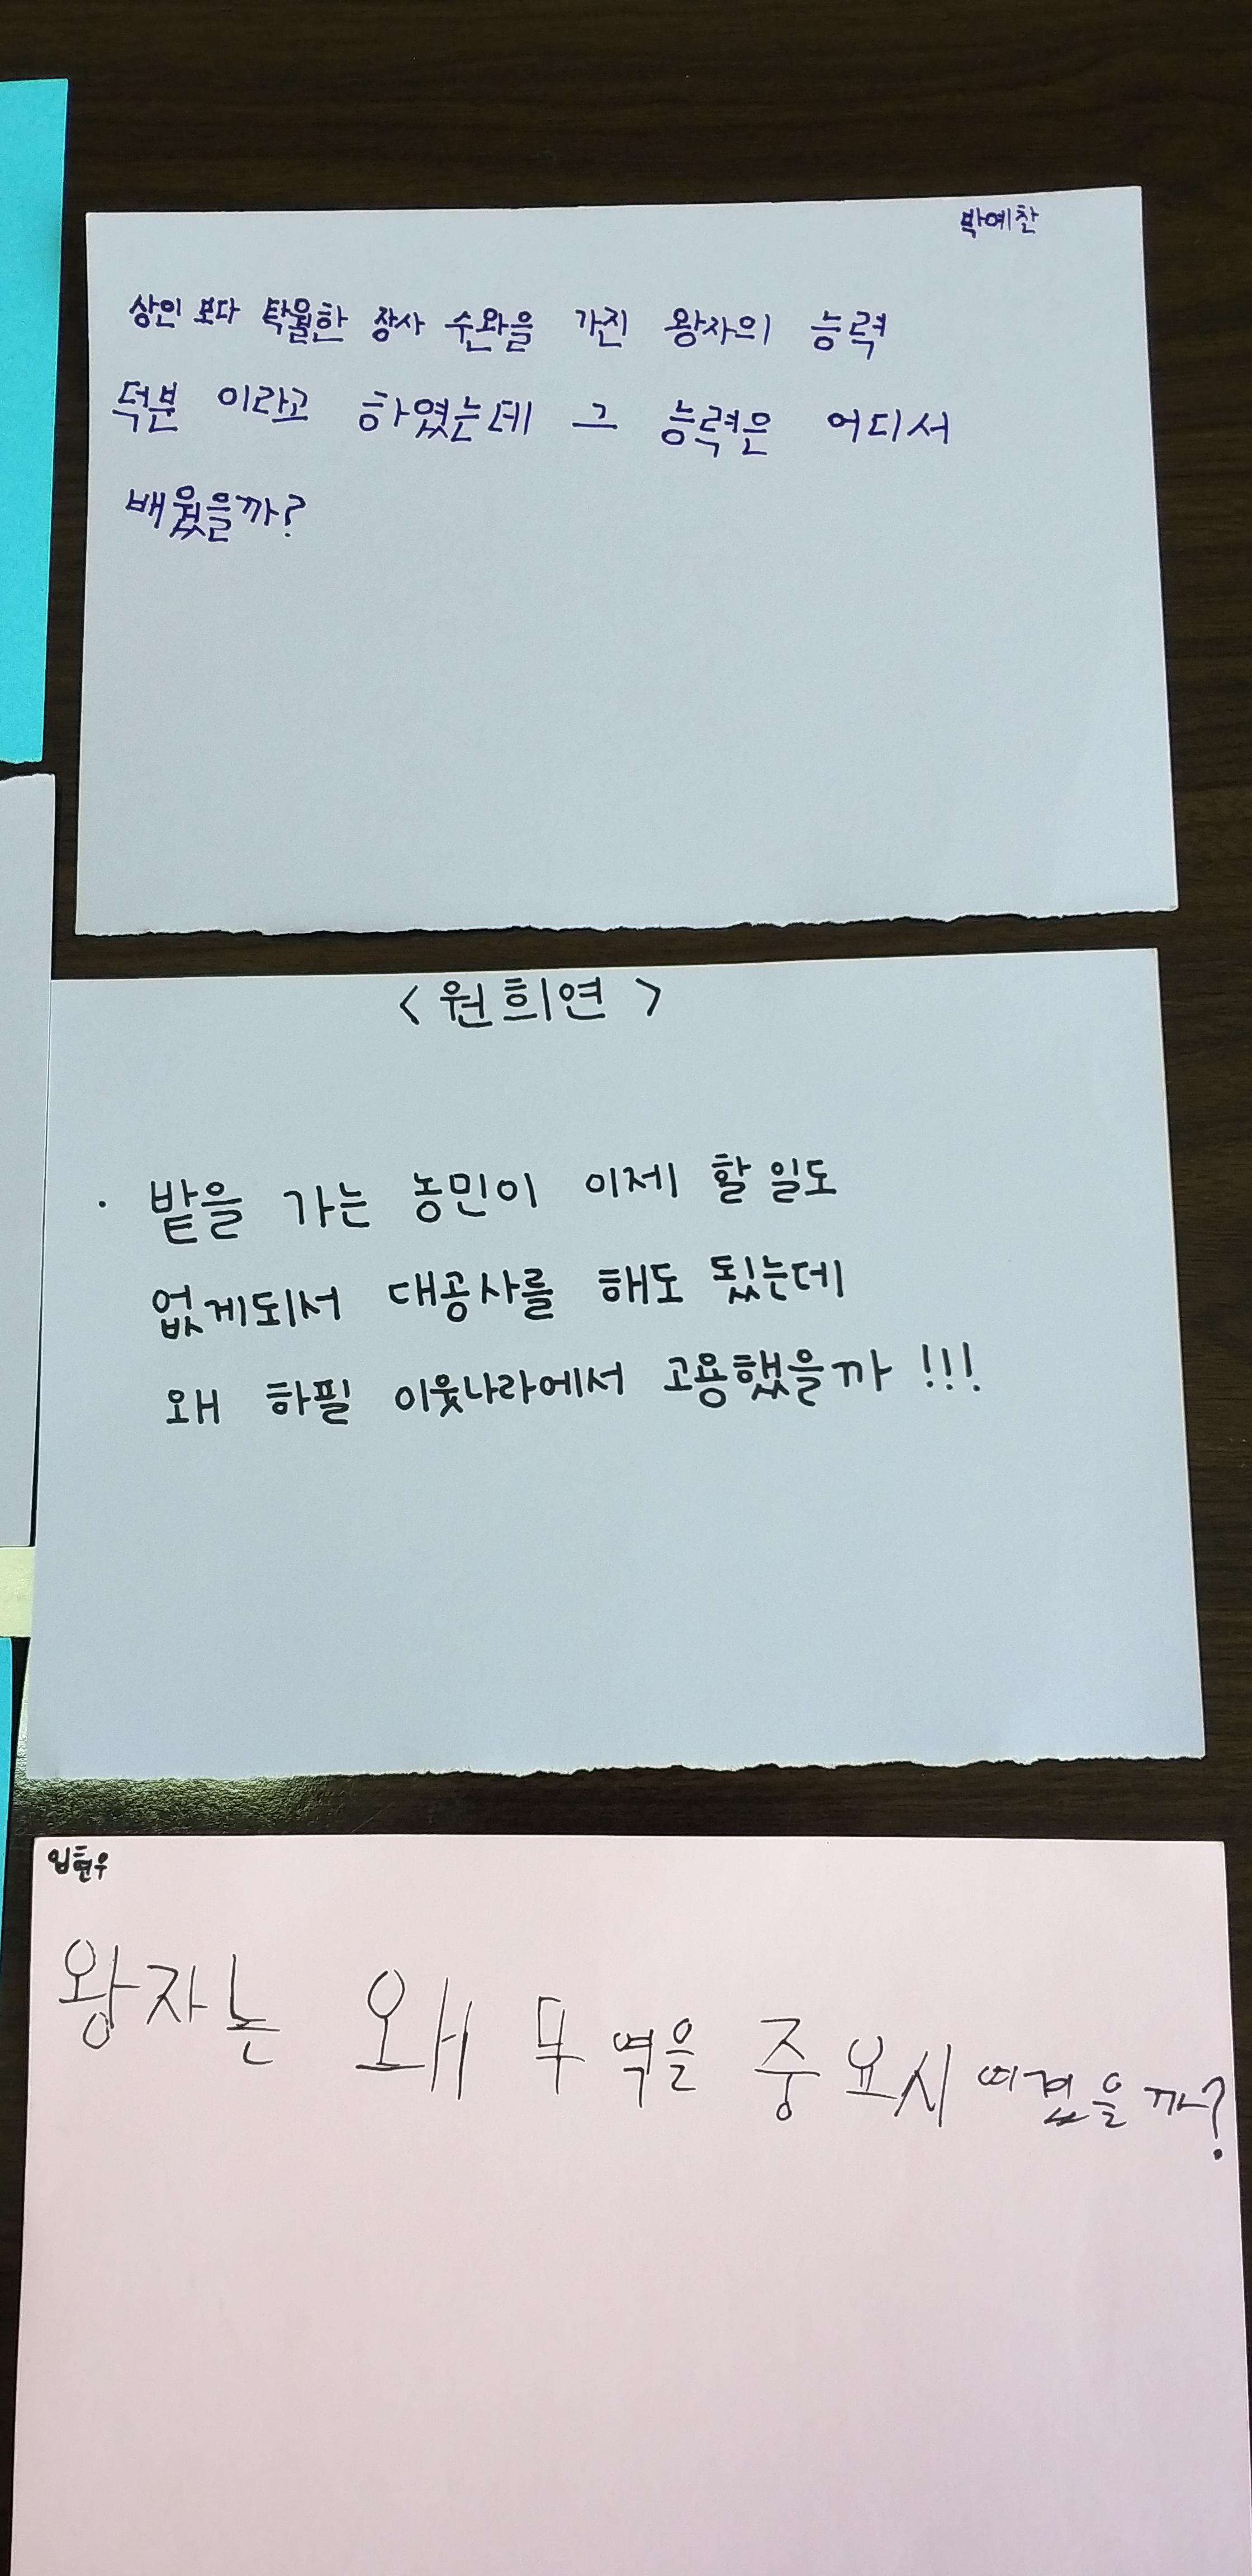 박예찬
상인 보다 탁월한 장사 수완을 가진 왕자의 능력
덕분 이라고 하였는데 그 능력은 어디서
배웠을까?
< 원희연 >
· 밭을 가는 농민이 이제 할 일도
없게되서 대공사를 해도 됬는데
왜 하필 이웃나라에서 고용했을까 !!!
임현우
왕자는 왜 무역을 중요시 여겼을까?